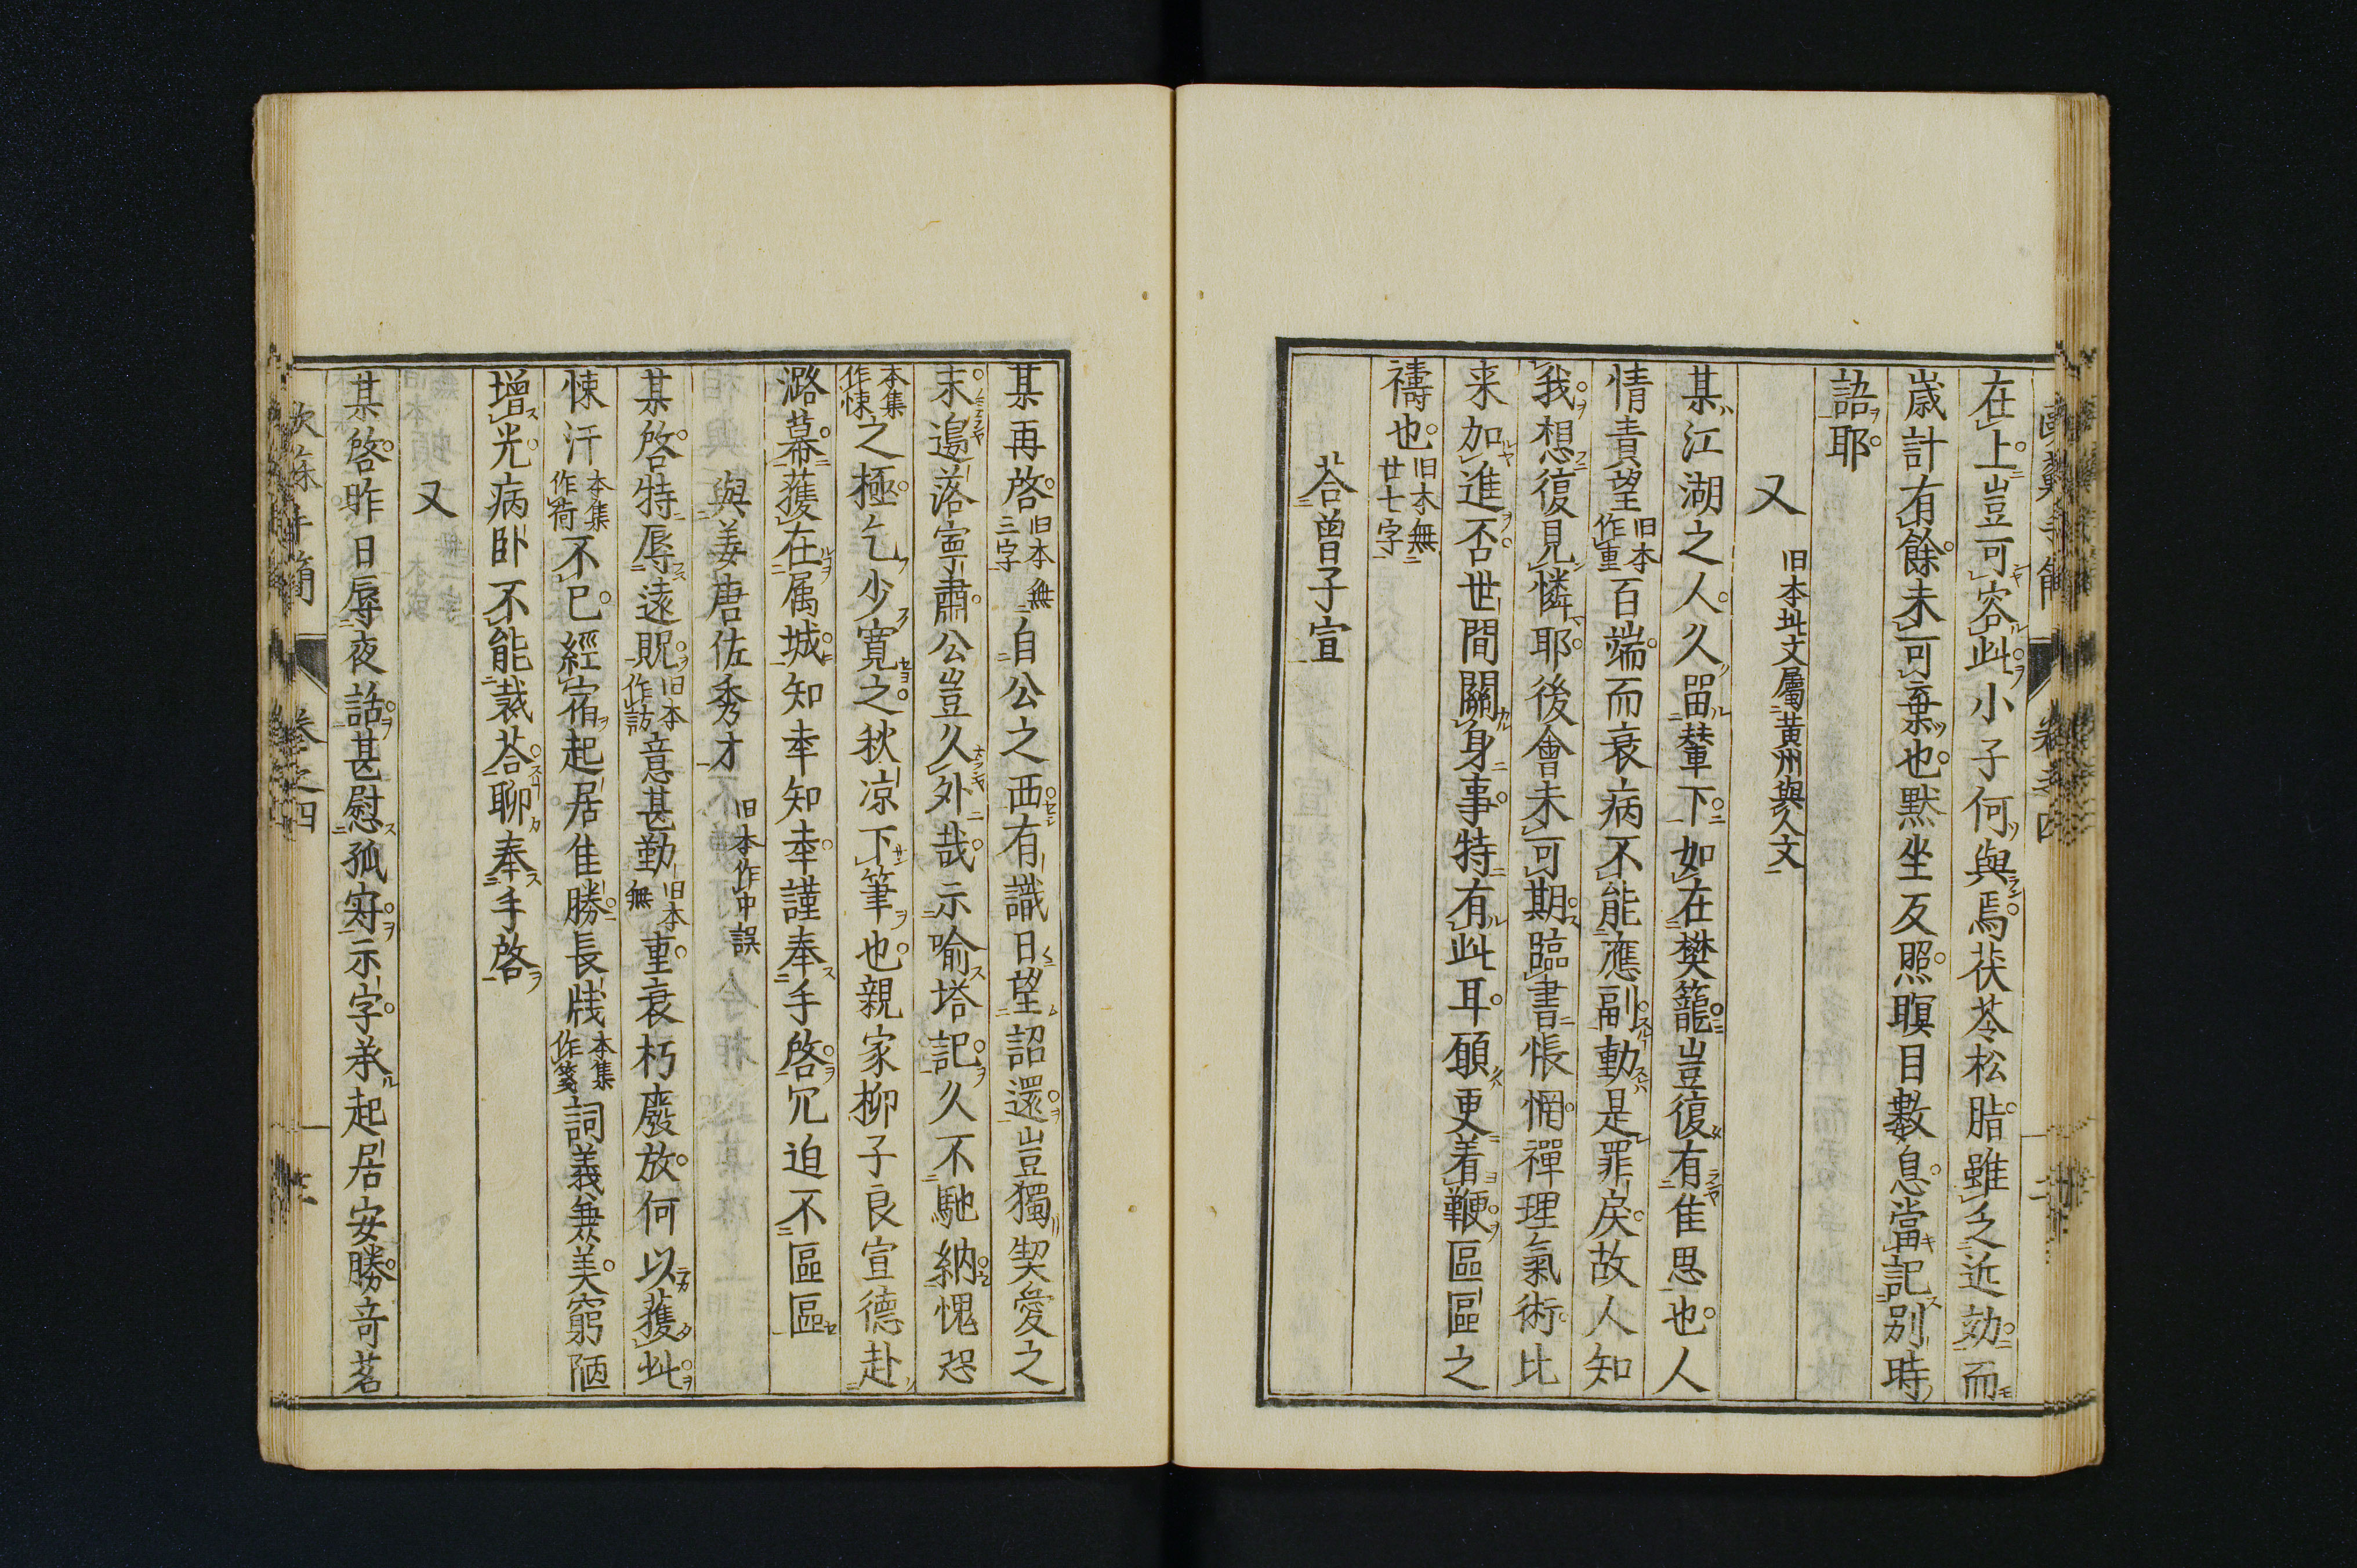 在上豈可容此小子何與焉茯苓松脂雖乏近効而
歳計有餘未可棄也默坐反照瞑目數息當記别時
語耶
又 旧本此文屬黄州與人文
某江湖之人久留輦下如在樊籠豈復有佳思也人
情責望旧本作重百端而衰病不能應副動是罪戻故人知
我想復見憐耶後會未可期臨書悵惘禪理氣術比
来加進否世間關身事特有此耳願更着鞭區區之
禱也旧本無廿七字
荅曾子宣
某再啓旧本無三字自公之西有識日望詔還豈獨契愛之
末邉落寧肅公豈久外哉示喻塔記久不馳納愧恐
本集作悚之極乞少寛之秋凉下筆也親家柳子良宣德赴
潞幕獲在属城知幸知幸謹奉手啓冗迫不區區
與姜唐佐秀才 旧本作中誤
某啓特辱遠貺旧本作訪意甚勤旧本無重衰朽廢放何以獲此
悚汗本集作荷不已經宿起居佳勝長牋本集作箋詞義兼美窮陋
增光病卧不能裁荅聊奉手啓
又
某啓昨日辱夜話甚慰孤寂示字承起居安勝竒茗
卷之四